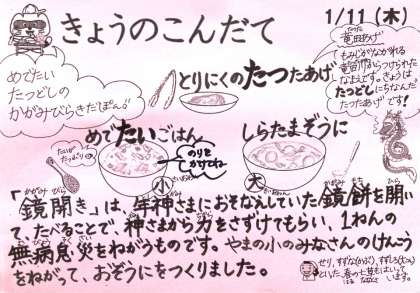 きょうのこんだて
1/11 (木)
めでたい
たつどしの
かがみびらきだぽん♪
とりにくのたつたあげ
竜田あげ
もみじがながれる
竜田川からつけられた
なまえです。きょうは
たつどしにちなんだ
たつたあげです!
めでたいごはん
しらたまぞうに
たいが
たっぷり
のりを
かけてね
小
大
「鏡開き」は、年神さまにおそなえしていた鏡餅を開い
かがみ びら
かがみ もち
て、たべることで、神さまから力をさずけてもらい、1ねんの
無病息災をねがうものです。やまの小のみなさんのけんこう
をねがって、おぞうにをつくりました。
せり、すずな(かぶ)、すずしろ(だいこん)
といった、春の七草もはいって
います。